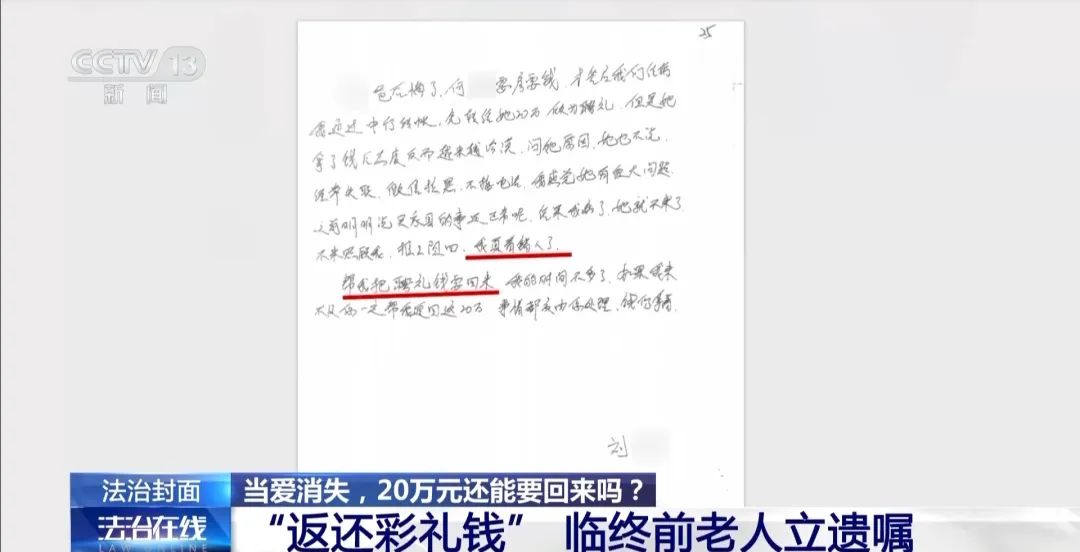 CCTV 13
新闻
25
爸后悔了,何 要彩要钱,才老后我们住病
我通过中行转帐,先转给她20万做为聘礼,但是她
拿了钱后态度反而越来越冷淡,问她原因,她也不说,
经常失联,微信拉黑,不接电话,我感觉她有重大问题.
之前明明说买房的事还正常呢,结果我病了,她就不来了
不来照顾我,推三阻四,我真看错人了.
帮我把聘礼钱要回来 我的时间不多了,如果我来
不及你一定帮我要回这20万 事情都交由你处理,钱你拿着.
刘
法治封面 当爱消失,20万元还能要回来吗?
法治在线 “返还彩礼钱” 临终前老人立遗嘱
LAW ONLINE